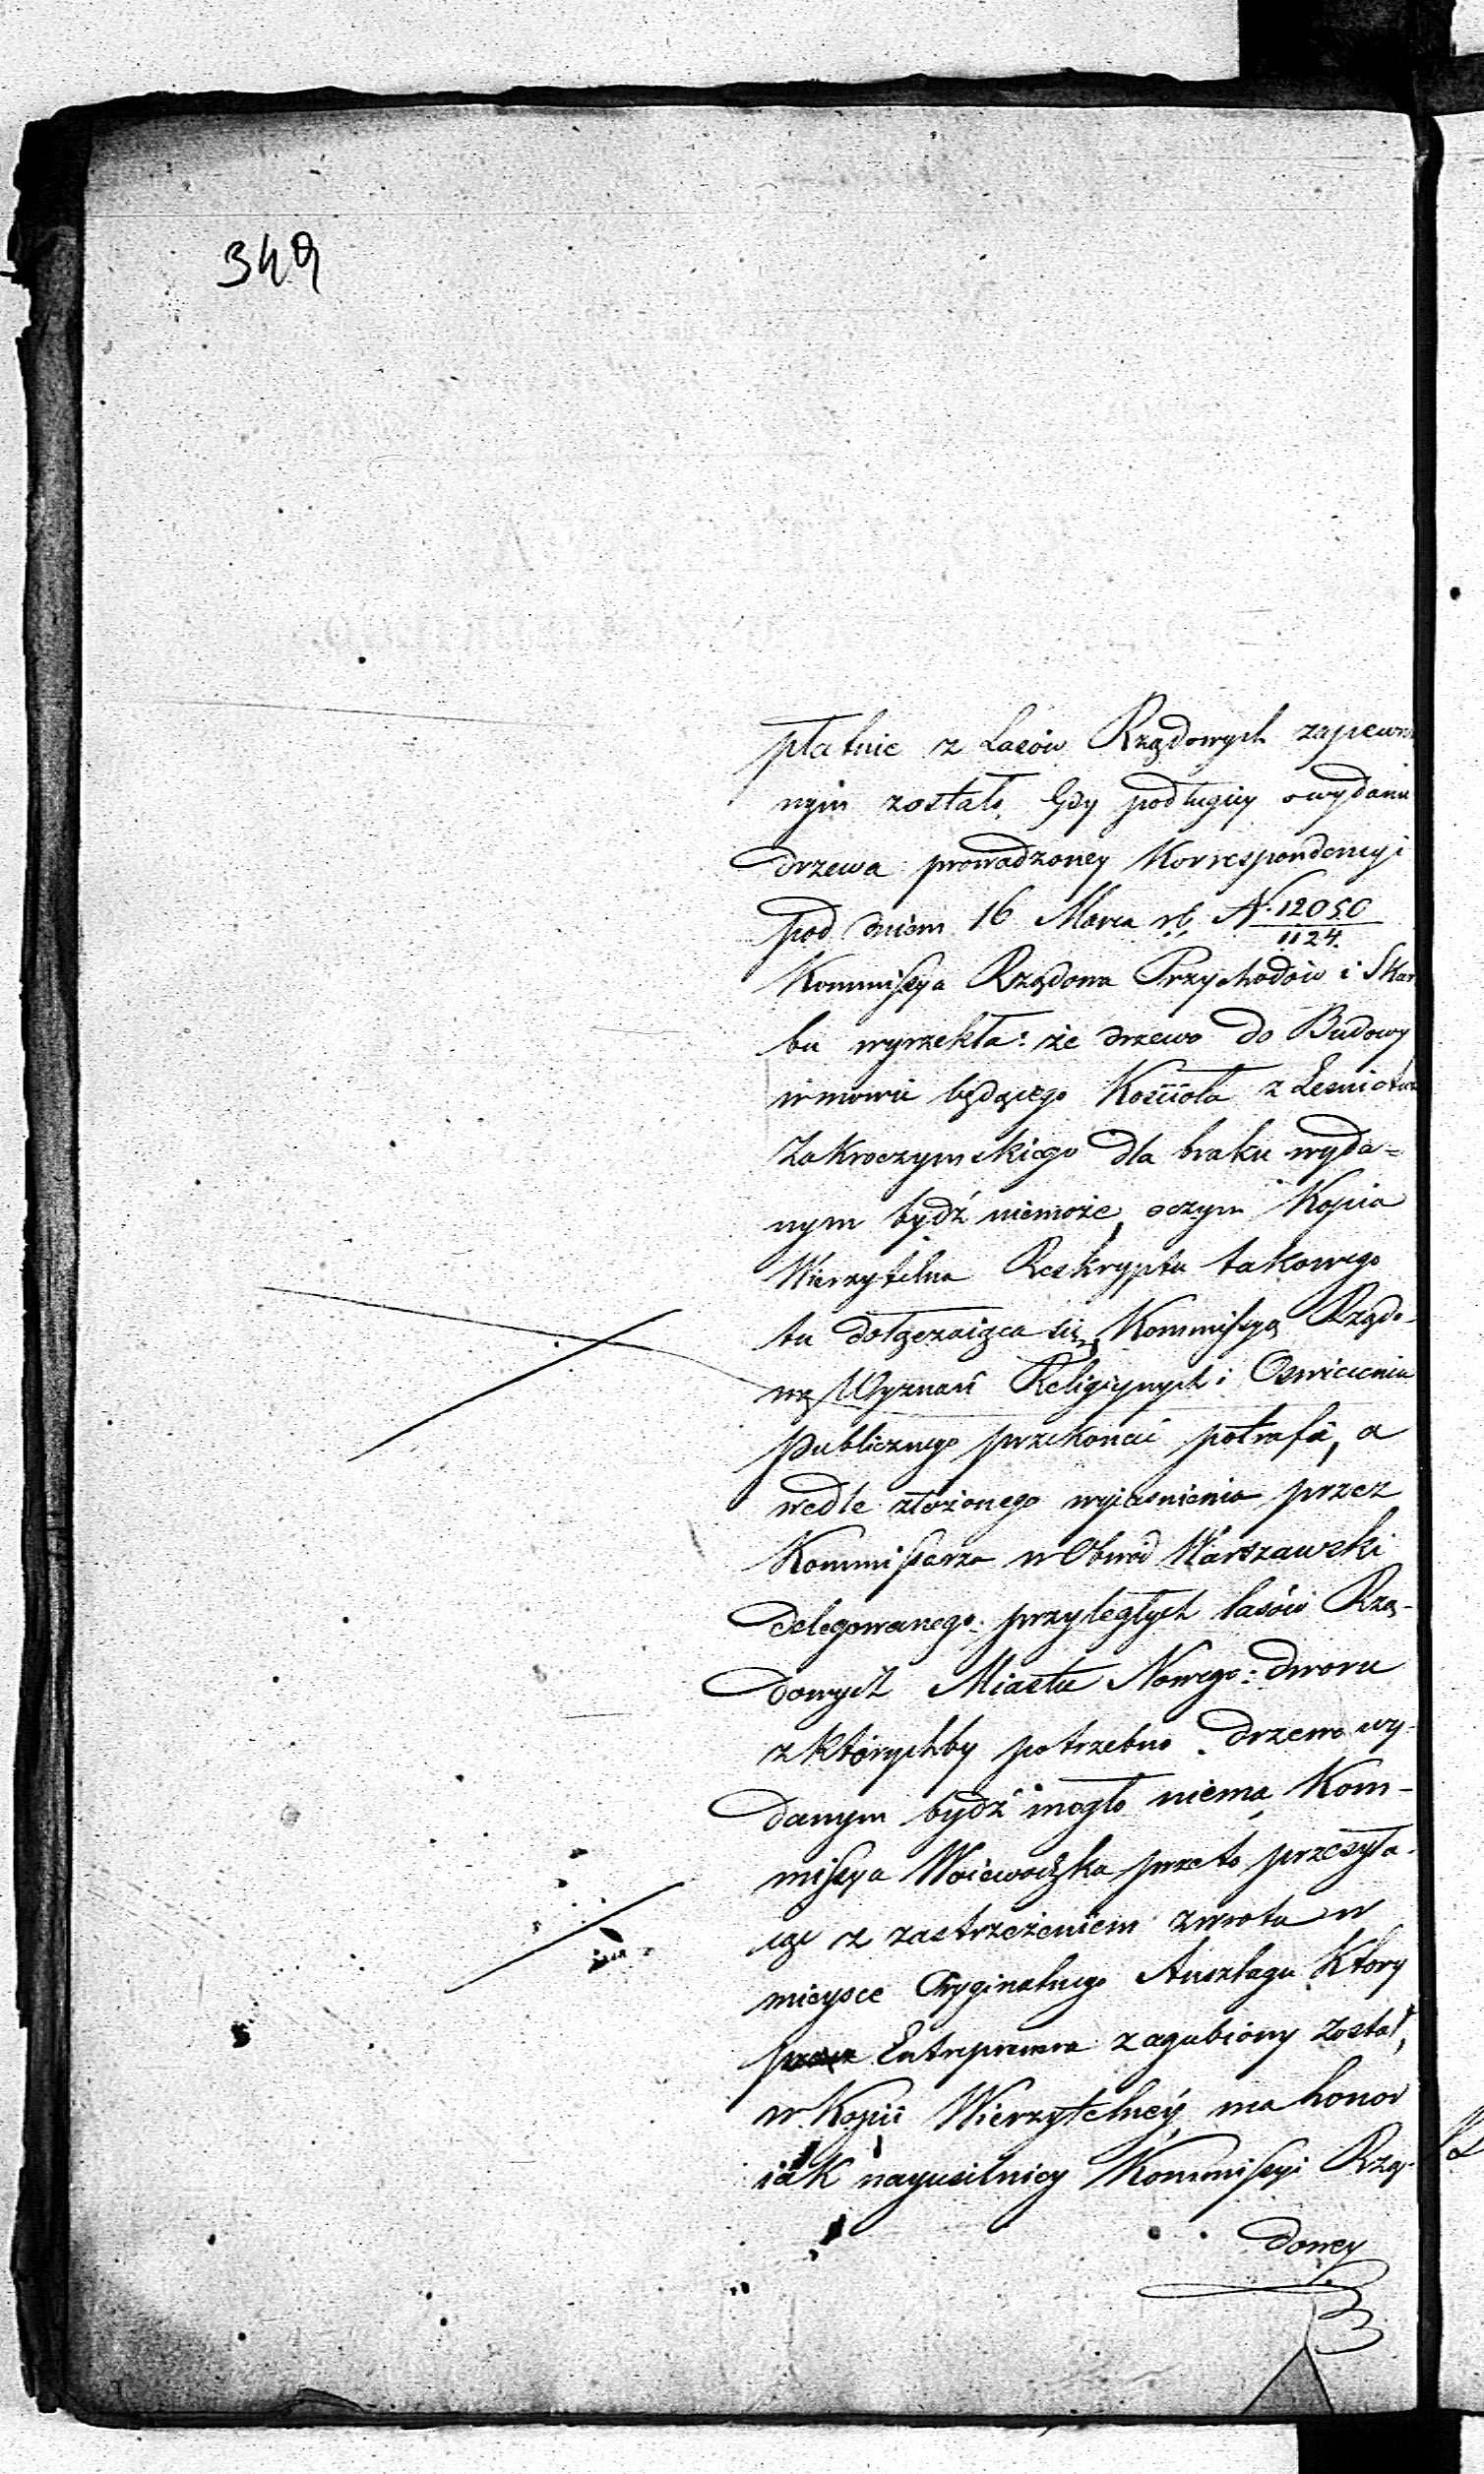 349
płatnie z Lasów Rządowych zapewni
nym zostało. Gdy podługiey o wydanie
drzewa prowadzoney Korrespondencyi
pod dniem 16 Marca rb. N. 12050/1124.
Kommissya Rządowa Przychodów i Skar
bu wyrzekła: że drzewo do Budowy
w mowie będącego Kościoła z Leśnictwa
Zakroczymskiego dla braku wyda=
nym bydź niemoże, o czym Kopia
Wierzytelna Reskryptu takowego
tu dołączaiąca się, Kommissyą Rządo-
wą Wyznań Religiynych i Oświecenia
Publicznego przekonać potrafi, a
wedle złożonego wyiaśnienia przez
Kommissarza w Obwód Warszawski
delegowanego przyległych lasów Rzą-
dowych Miastu Nowego: dworu
z którychby potrzebne drzewo wy-
danym bydź mogło niema, Kom-
missya Woiewodzka przeto przesyła-
iąc z zastrzeżeniem zwrotu w
mieysce Oryginalnego Anszlagu który
przez Entreprenera zagubiony został,
w Kopii Wierzytelnéy, ma honor
iak nayusilniey Kommissyi Rzą-
dowey